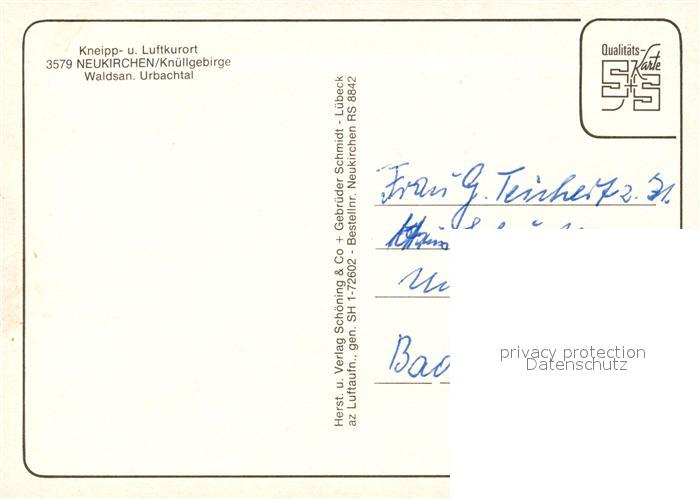 Kneipp- u. Luftkurort
3579 NEUKIRCHEN/Knüllgebirge
Waldsan. Urbachtal
Herst. u. Verlag Schöning & Co + Gebrüder Schmidt - Lübeck
az Luftaufn., gen. SH 1-72602 - Bestellnr. Neukirchen RS 8842
Qualitäts-
Karte
S+S
Frau G. Teichert z. Zt.
Bad
privacy protection
Datenschutz